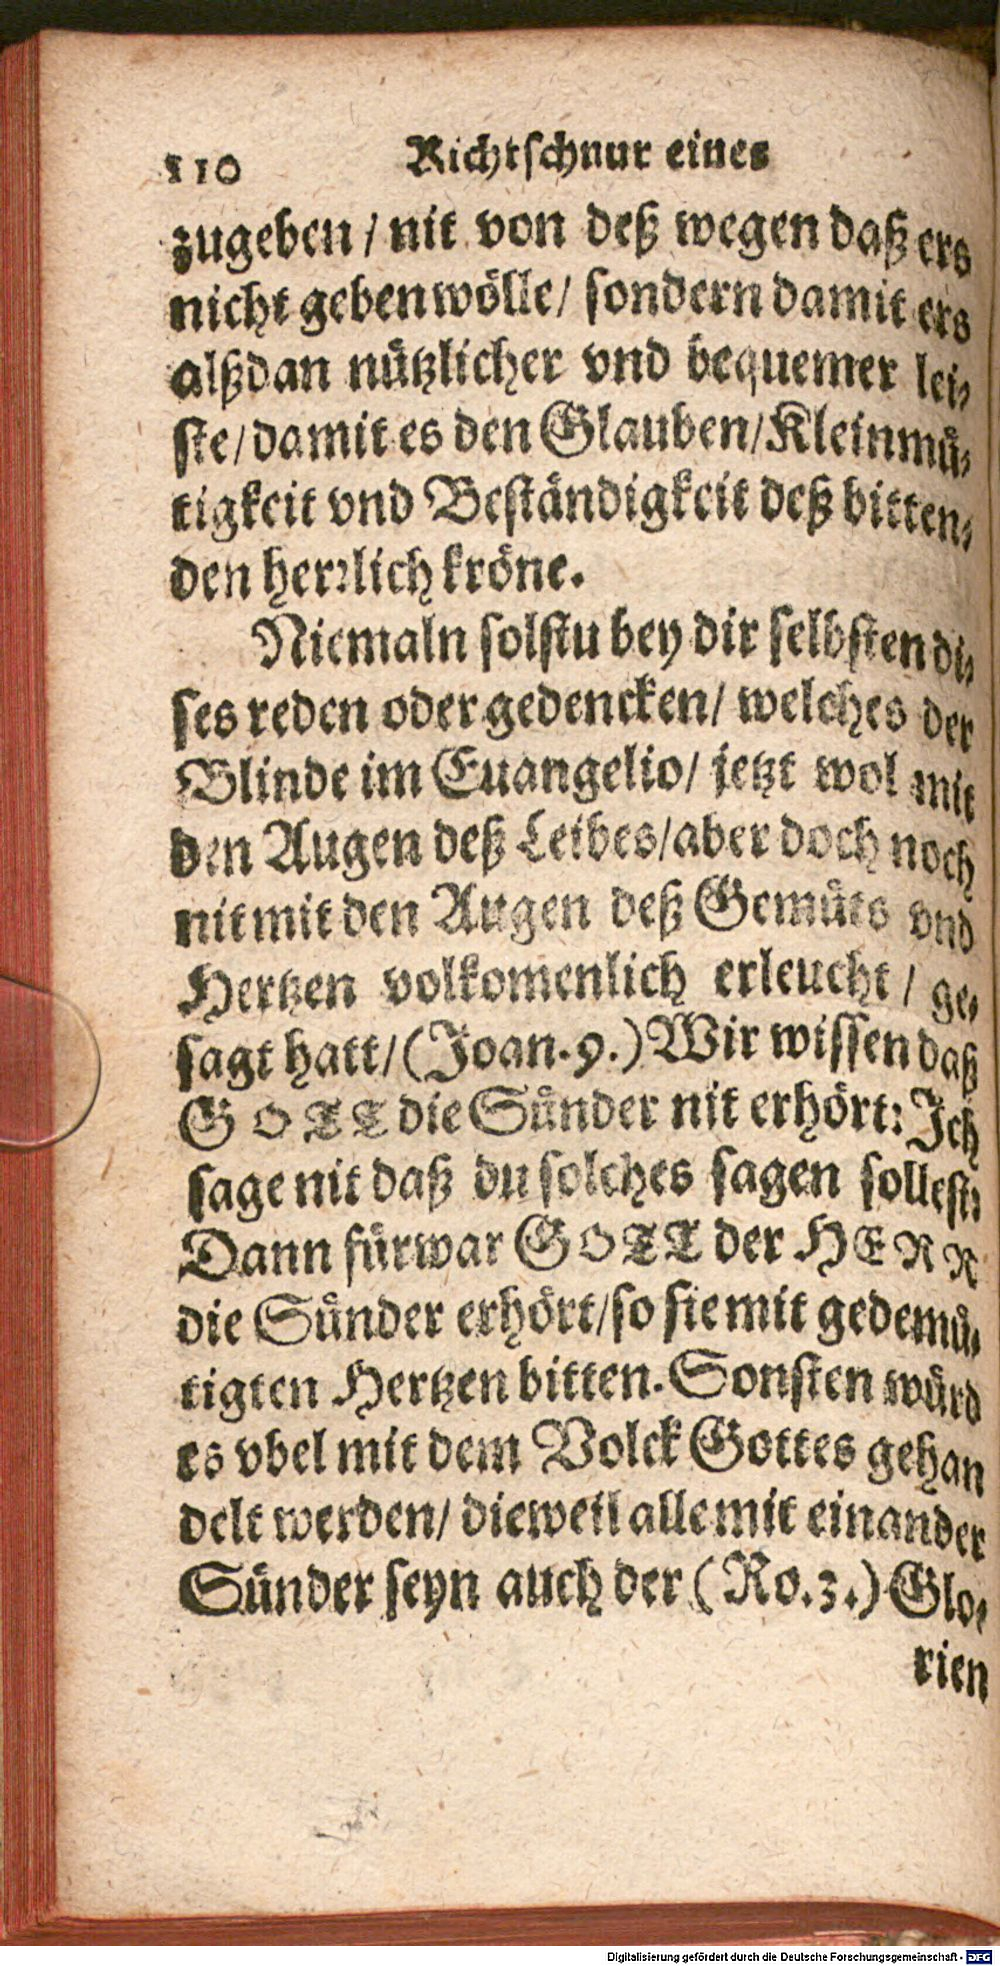 110 Richtschnur eines
zugeben / nit von deß wegen daß ers
nicht geben wölle / sondern damit ers
alßdan nützlicher vnd bequemer lei-
ste / damit es den Glauben / Kleinmü-
tigkeit vnd Beständigkeit deß bitten-
den herrlich kröne.
Niemaln solstu bey dir selbsten di-
ses reden oder gedencken / welches der
Blinde im Euangelio / jetzt wol mit
den Augen deß Leibes / aber doch noch
nit mit den Augen deß Gemüts vnd
Hertzen volkomenlich erleucht / ge-
sagt hatt / (Joan. 9.) Wir wissen daß
GOTT die Sünder nit erhört: Ich
sage nit daß du solches sagen sollest:
Dann fürwar GOTT der HERR
die Sünder erhört / so sie mit gedemü-
tigten Hertzen bitten. Sonsten würd
es vbel mit dem Volck Gottes gehan
delt werden / dieweil alle mit einander
Sünder seyn auch der (Ro. 3.) Glo-
rien
Digitalisierung gefördert durch die Deutsche Forschungsgemeinschaft - DFG